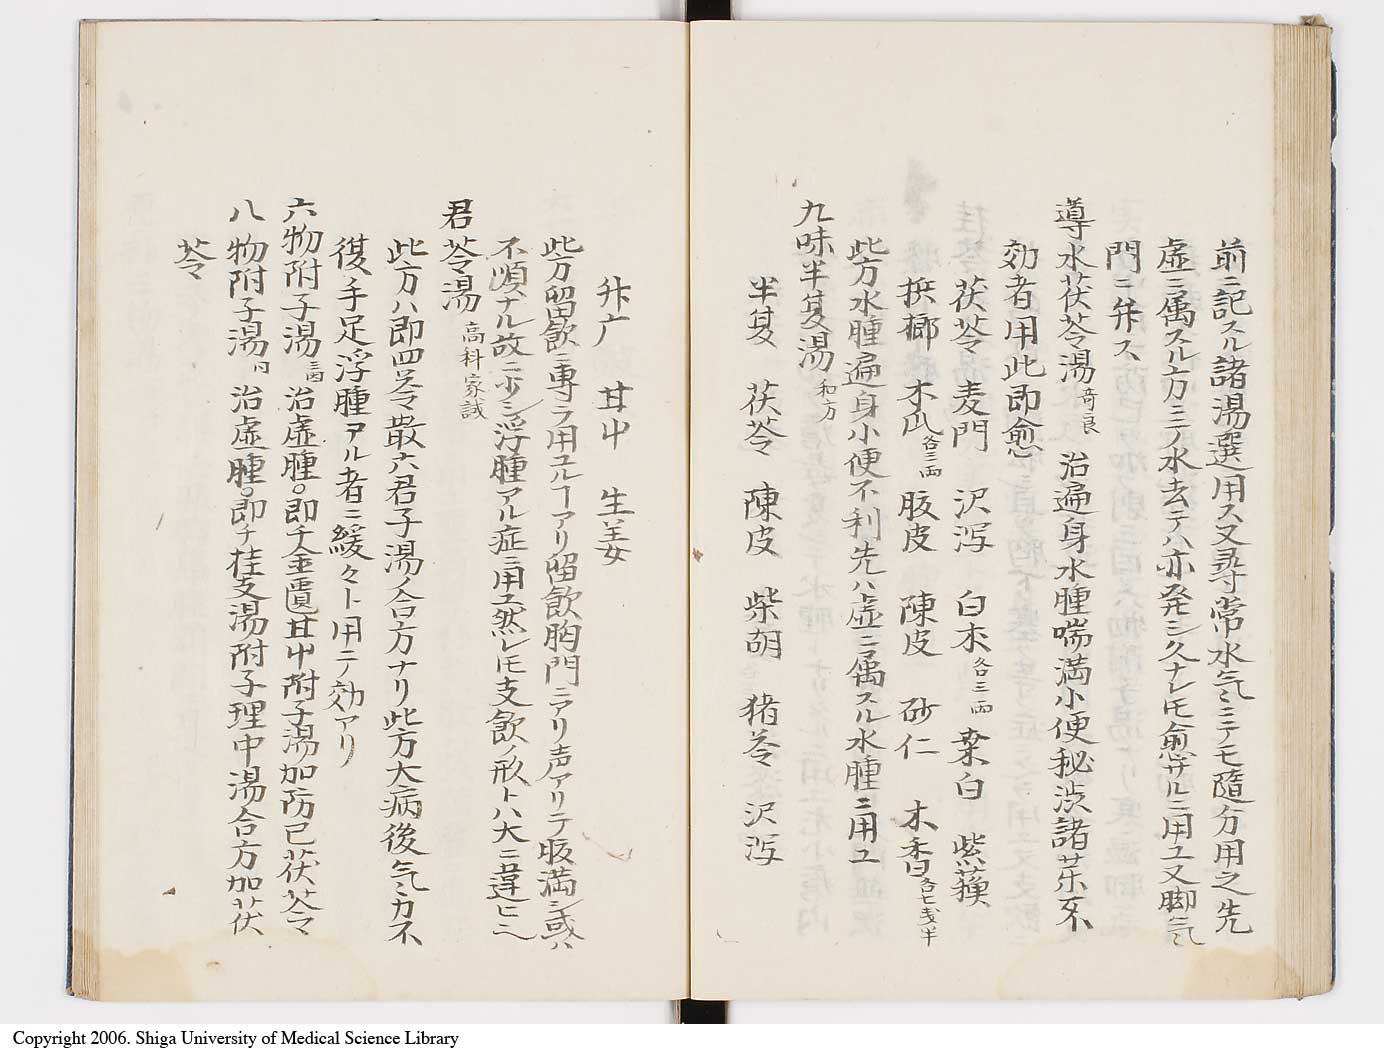 前ニ記スル諸湯選用ス又尋常水気ミニテモ随分用之先
虚ニ属スル方ニテノ水去テハ亦発ミ久ナレ圧愈サルニ用ユ又脚気
門ニ弁ス
導水茯苓湯 奇良 治遍身水腫喘満小便秘渋諸薬不
効者用此即愈
茯苓 麦門 沢瀉 白朮各三両 桑白 紫蘓
梹榔 木瓜各三両 腹皮 陳皮 砂仁 木香各七戔半
此方水腫遍身小便不利先ハ虚ニ属スル水腫ニ用ユ
九味半夏湯 和方
半夏 茯苓 陳皮 柴胡 猪苓 沢瀉
升广 甘艸 生姜
此方留飲ニ専ラ用ユルヿアリ留飲胸門ニアリ声アリテ腹満シ或ハ
不順ナル故ニ少シ浮腫アル症ニ用ユ然レ圧支飲ノ形トハ大ニ違ヒシ
君苓湯 高科家誡
此方ハ即四苓散六君子湯ノ合方ナリ此方大病後気ミカ不
復手足浮腫アル者ニ緩々ト用ニテ効アリ
六物附子湯 治虚腫。即チ金匱甘艸附子湯加防已茯苓
八物附子湯 治虚腫。即チ桂支湯附子理中湯合方加茯
苓
Copyright 2006. Shiga University of Medical Science Library